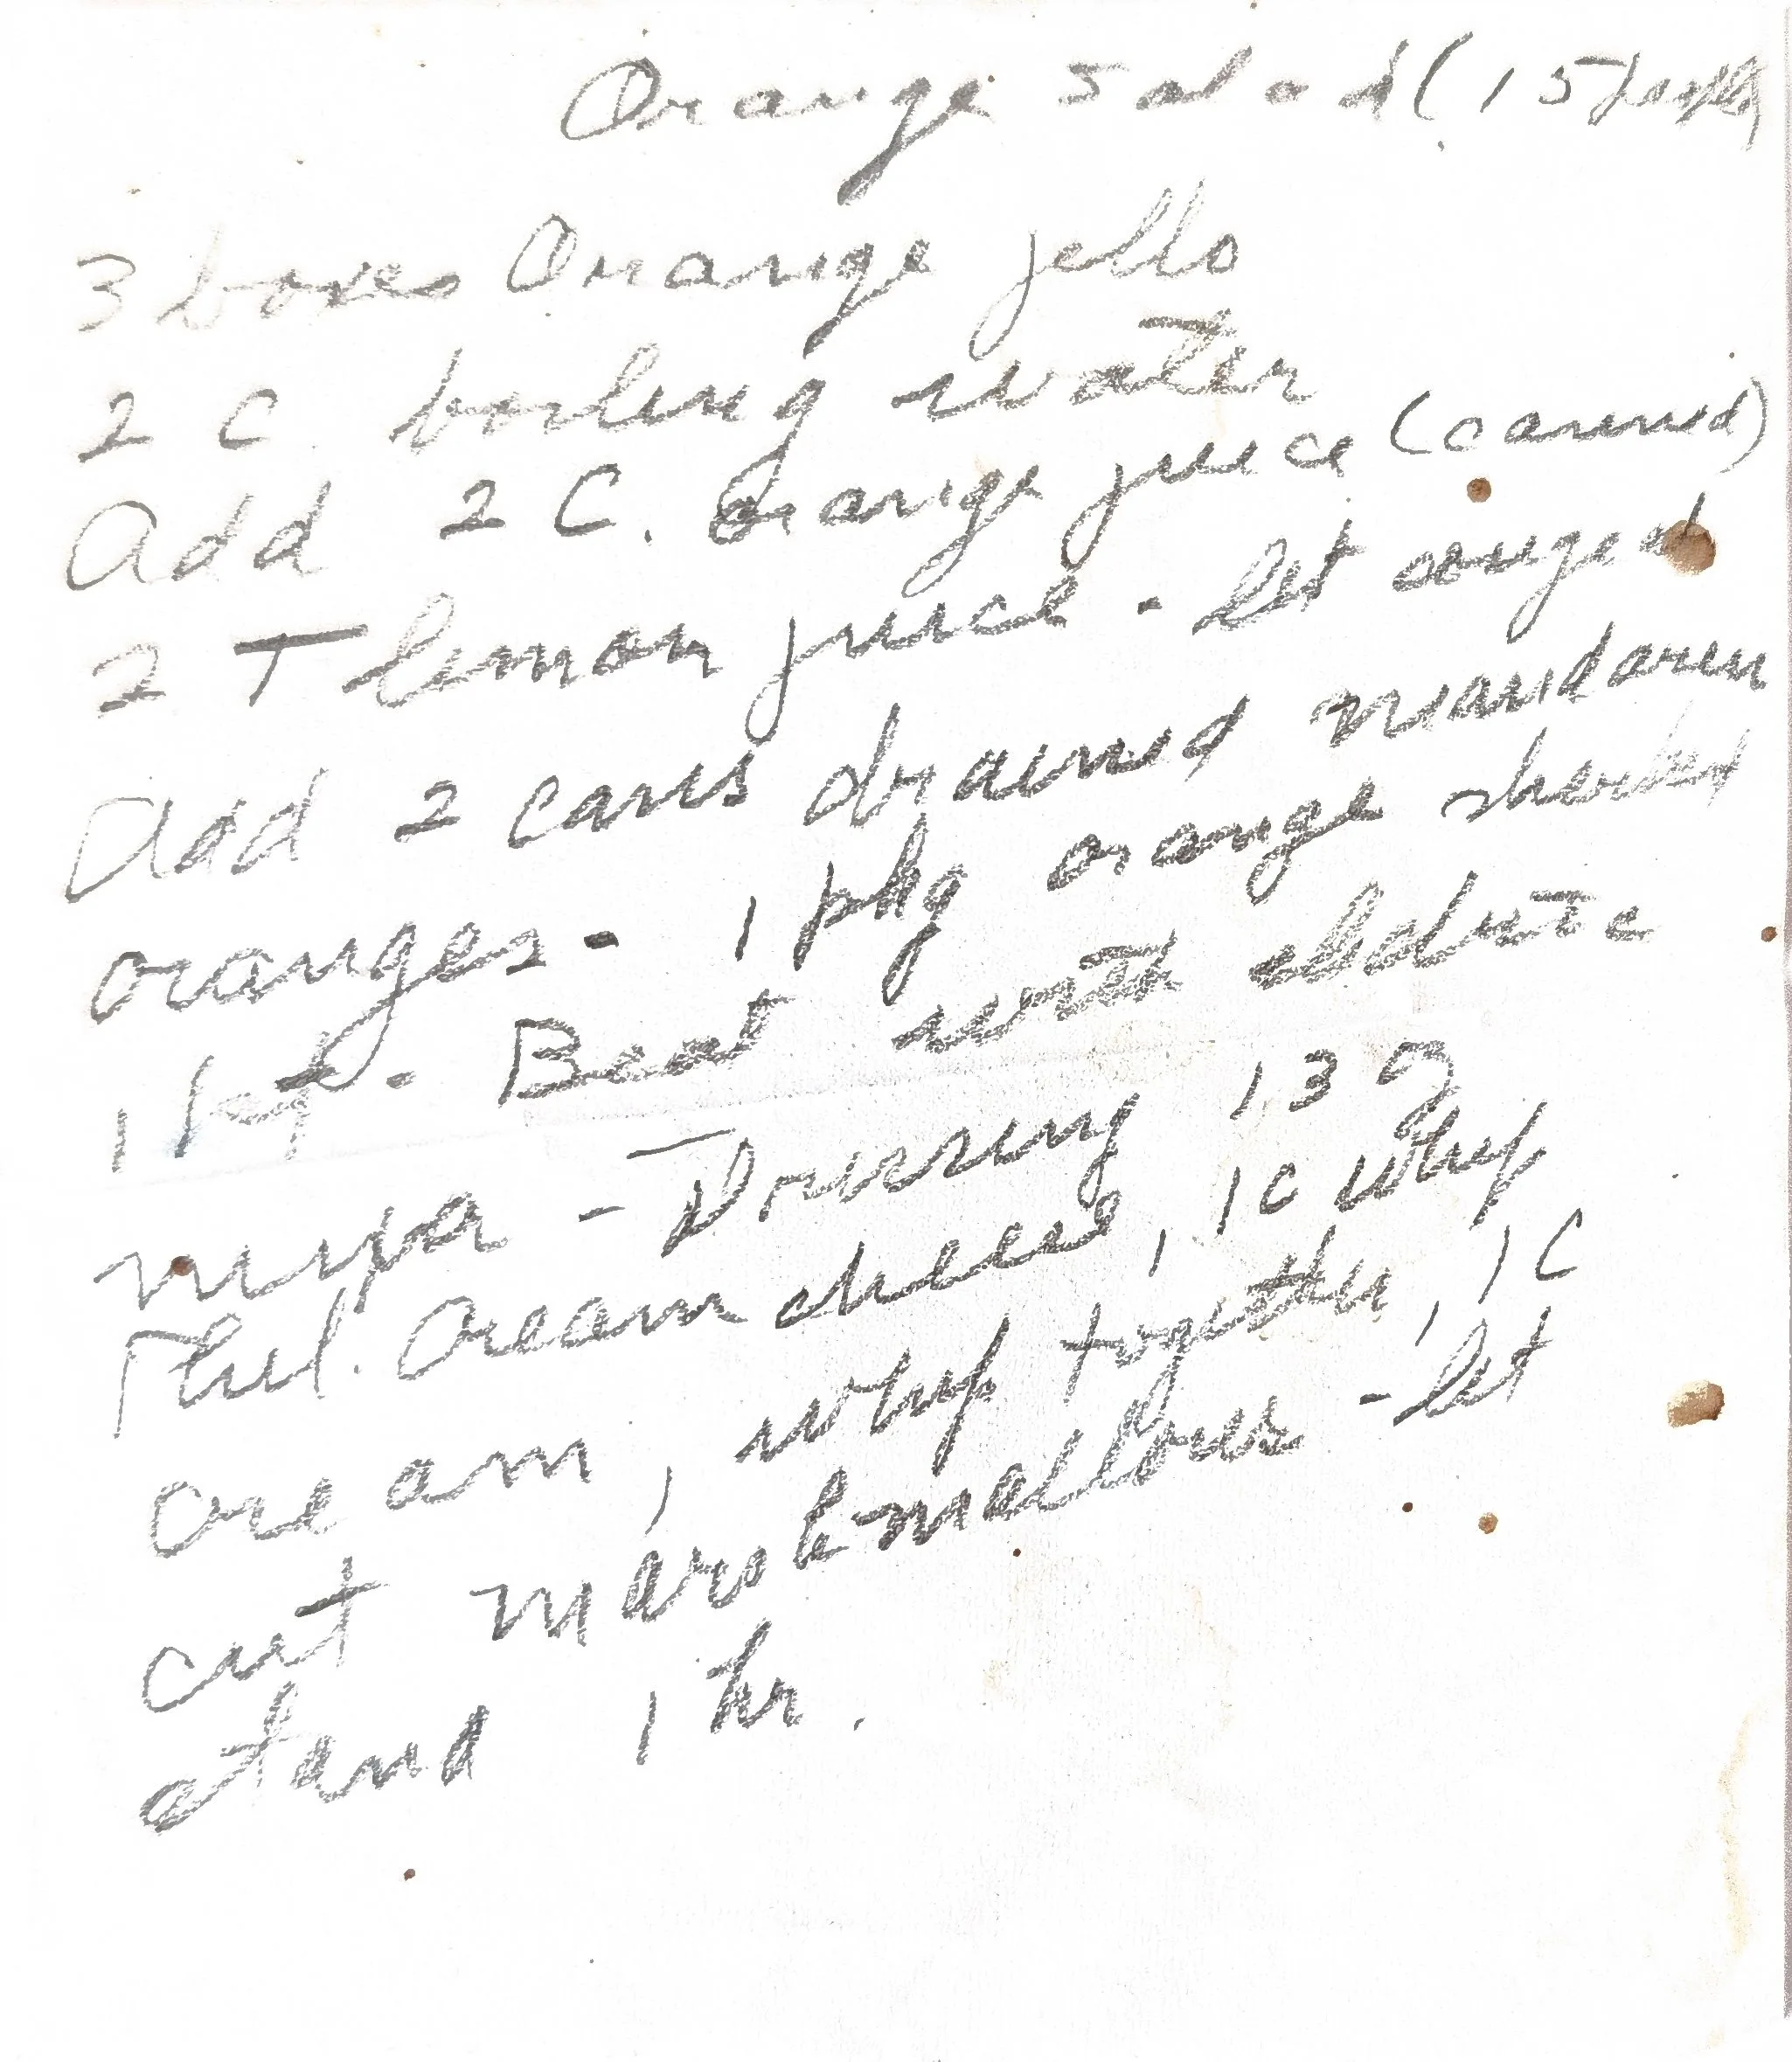 Orange Salad (15
3 boxes Orange jello
2 C. boiling water
Add 2 C. orange juice (canned)
2 T lemon juice - let
Add 2 cans drained mandarin
oranges - 1 pkg orange sherbet
1 pt. Beat with
- Dressing 1 3 oz
Phil. Cream cheese, 1 c whip
cream, whip together, 1 C
cut marshmallows - let
stand 1 hr.